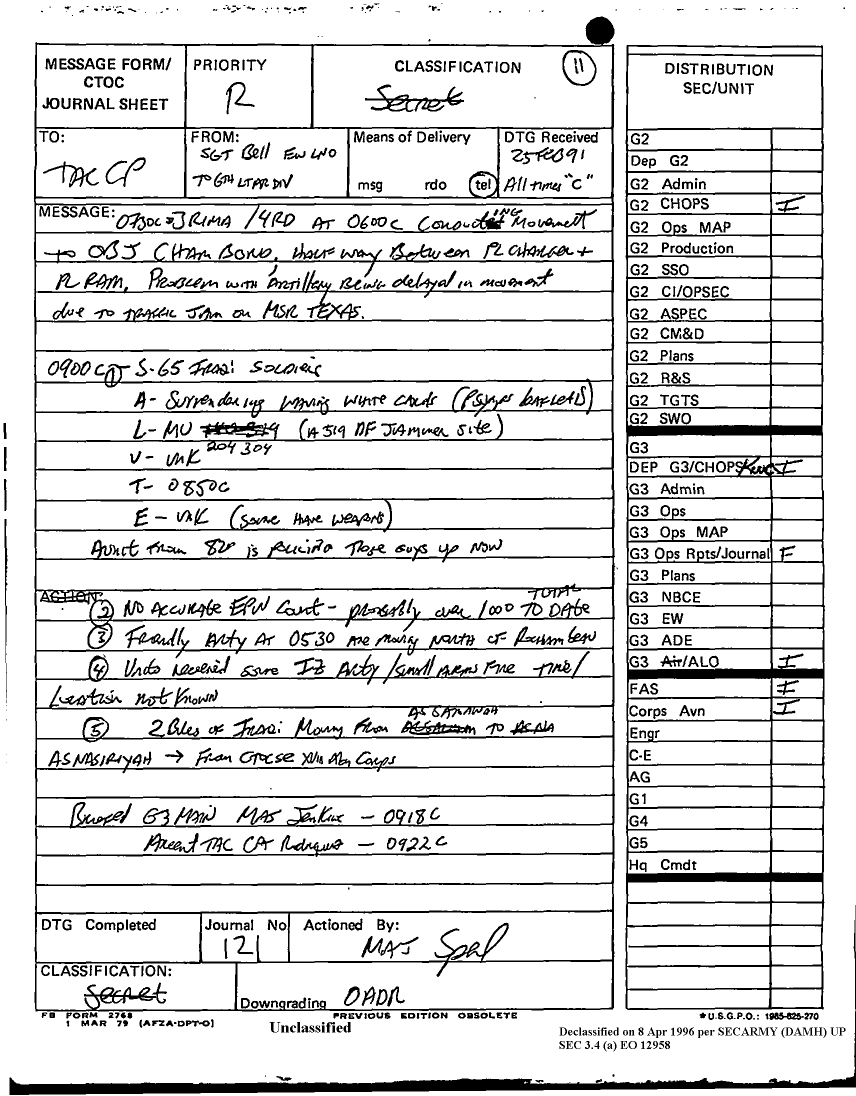 MESSAGE FORM/
CTOC
JOURNAL SHEET
PRIORITY
R
CLASSIFICATION
Secret
11
TO:
TAC CP
FROM:
SGT Bell EW LNO
TO 6TH LTARDIV
Means of Delivery
msg rdo tel
DTG Received
25FEB91
All times "C"
MESSAGE: 0730C BRIMA /4RD AT 0600C Conducting Movement
to OBJ CHAMBORD, HALFWAY Between PL CHARGER +
PL RAM, Problem with Artillery Being delayed in movement
due to TRAFFIC JAM on MSR TEXAS.
0900C 1 S-65 IRAQi SOLDIERS
A- Surrendering WAVING WHITE CARDS (PSYOPS LEAFLETS)
L- MU (A 519 DF JAMMER SITE)
204 304
U- UNK
T- 0850C
E- UNK (SOME HAVE WEAPONS)
A UNIT From 82D is POLICING These guys up NOW
ACTION:
2 NO ACCURATE EPW Count - probably over 1000 TOTAL TO DATE
3 Friendly Arty AT 0530 are moving NORTH OF ROCHAMBEAU
4 Units received some IZ Arty /Small ARMS Fire TIME/
Location not Known
5 2 Bdes of IRAQi Moving From AS SAMAWAH TO
ASNASIRIYAH → From CTOCSE XVIII Abn Corps
Briefed G3 MAIN MAJ Jenkins - 0918C
Arcent TAC CPT Rodriguez - 0922C
DTG Completed
Journal No
121
Actioned By:
MAJ
CLASSIFICATION:
Secret
Downgrading OADR
FB FORM 2768
1 MAR 79 (AFZA-DPT-O)
PREVIOUS EDITION OBSOLETE
Unclassified
DISTRIBUTION
SEC/UNIT
G2
Dep G2
G2 Admin
G2 CHOPS I
G2 Ops MAP
G2 Production
G2 SSO
G2 CI/OPSEC
G2 ASPEC
G2 CM&D
G2 Plans
G2 R&S
G2 TGTS
G2 SWO
G3
DEP G3/CHOPS I
G3 Admin
G3 Ops
G3 Ops MAP
G3 Ops Rpts/Journal F
G3 Plans
G3 NBCE
G3 EW
G3 ADE
G3 Air/ALO I
FAS I
Corps Avn I
Engr
C-E
AG
G1
G4
G5
Hq Cmdt
*U.S.G.P.O.: 1985-625-270
Declassified on 8 Apr 1996 per SECARMY (DAMH) UP
SEC 3.4 (a) EO 12958